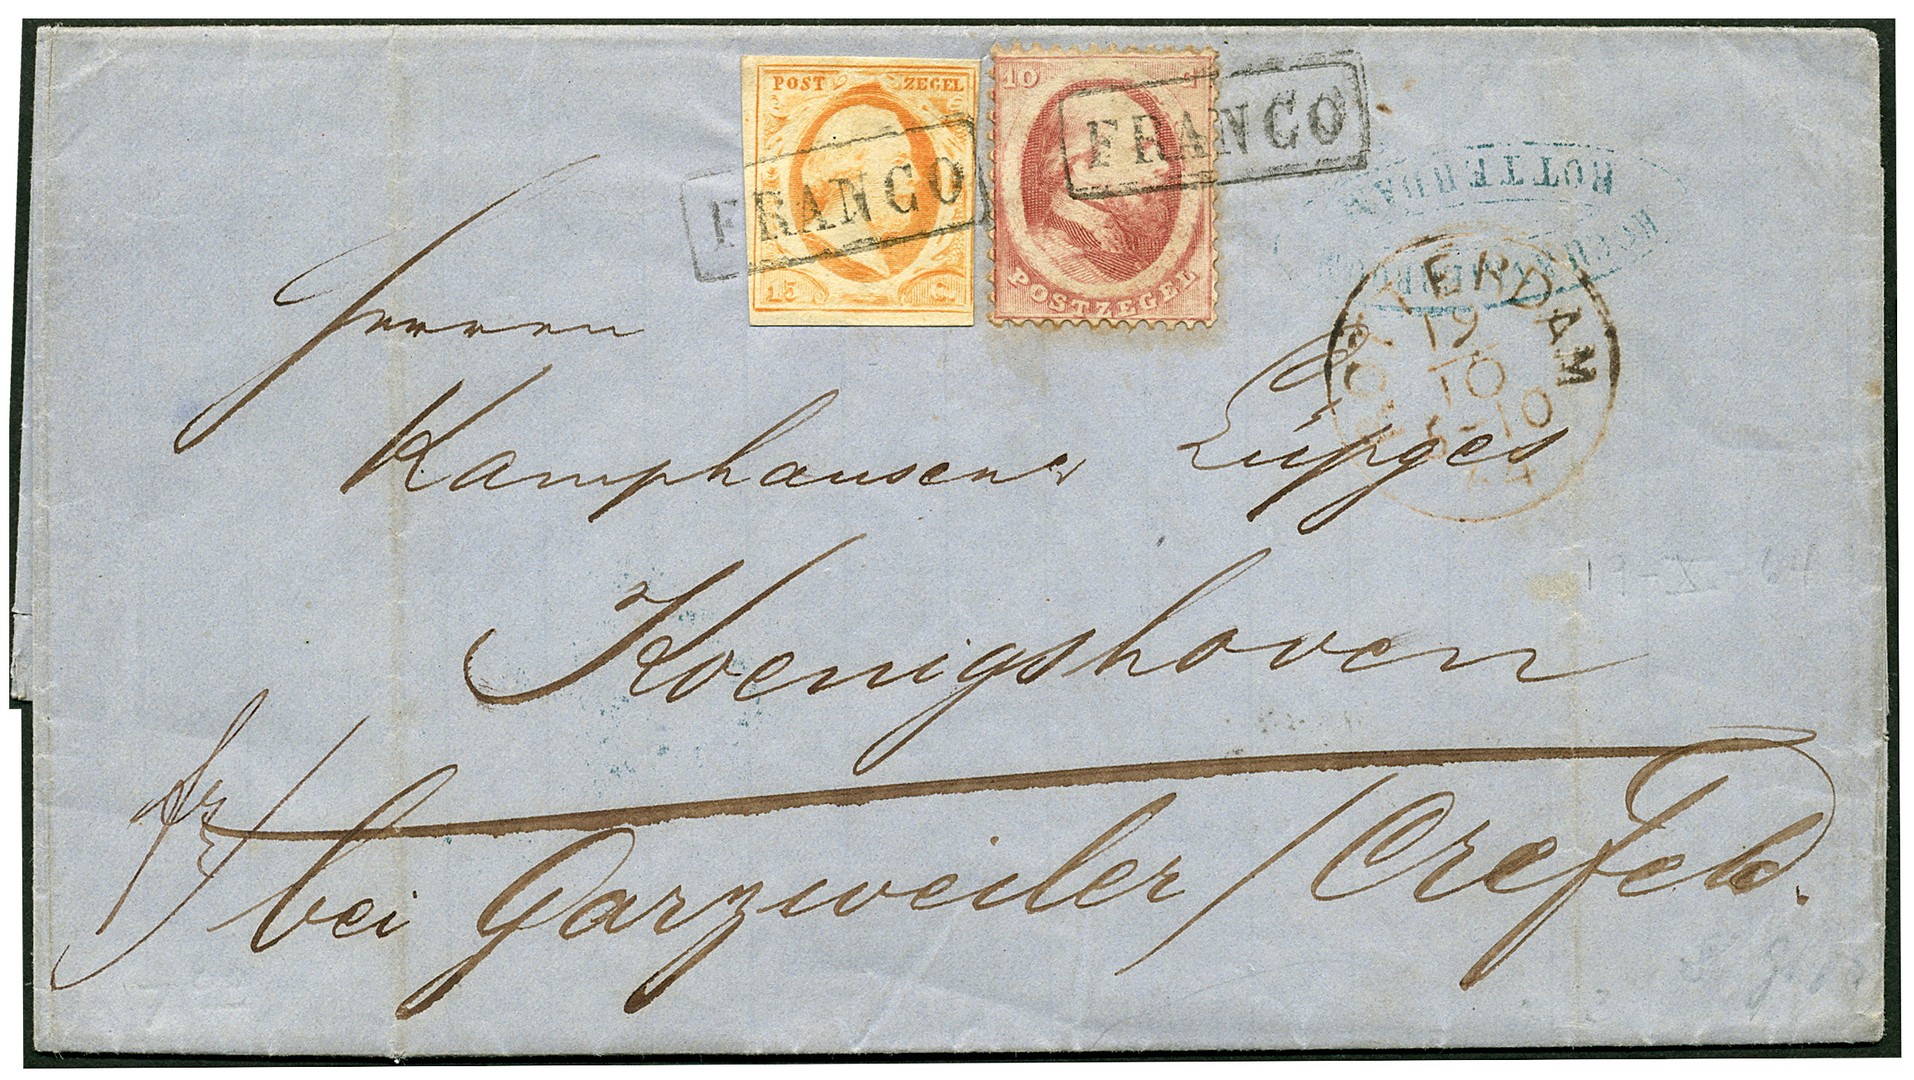 POST ZEGEL
15 C.
FRANCO
10 C
POSTZEGEL
FRANCO
ROTTERDAM
ROTTERDAM
19
10
Herren
Kamphausen & Lüpges
Koenigshoven
fr/ bei Garzweiler / Crefeld.